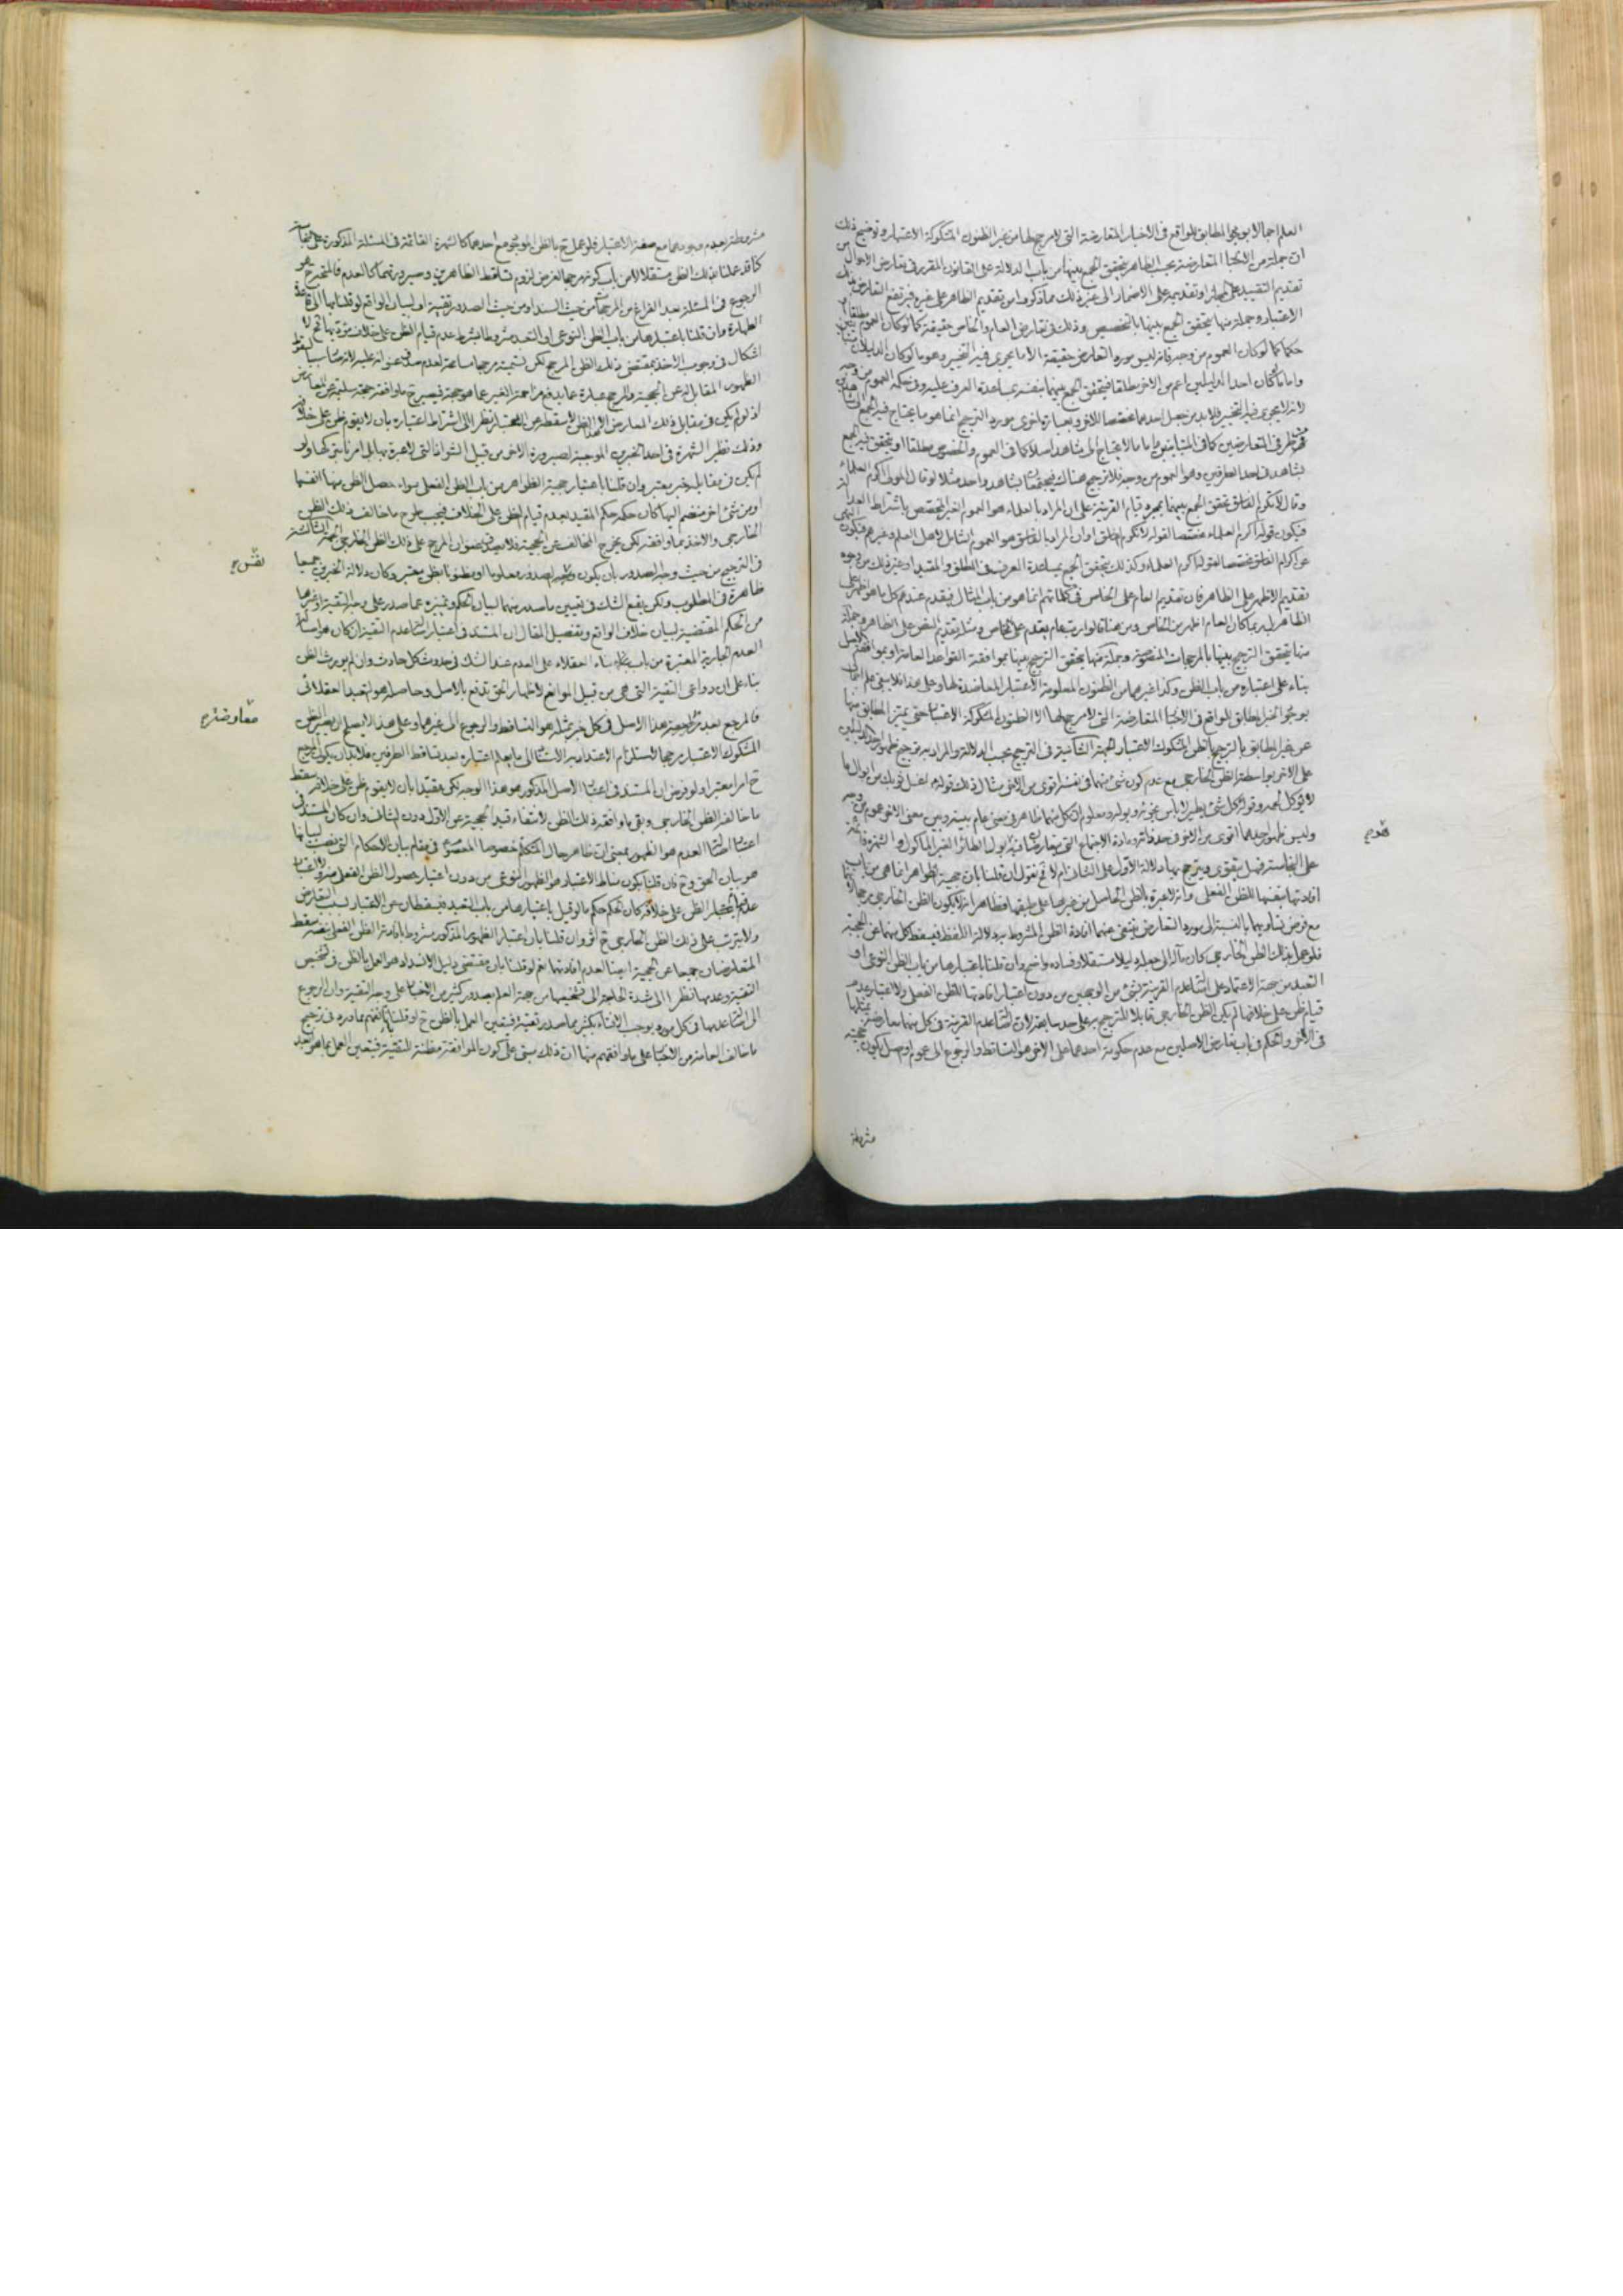 العلم اجمالا بوجود المطابق للواقع فى الاخبار المتعارضة التى لا مرجح لها من غير الظنون المشكوكة الاعتبار وتوضيح ذلك
ان جملة من الاخبار المتعارضة بحسب الظاهر يتحقق الجمع بينها من باب الدلالة على القانون المقرر فى تعارض الاحوال من
تقديم التقييد على وتقديمه على الاضمار الى غير ذلك مما ذكروا من تقديم الظاهر على غيره فيرتفع التعارض
الاعتبار وجملة منها يتحقق الجمع بينها بالتخصيص وذلك فى تعارض العام والخاص حقيقة كما لو كان العموم مطلقا
حكما كما لو كان العموم من وجه فانه ليس مورد التعارض حقيقة الا ما يجرى فيه التخيير وهو ما لو كان الدليلان
واما ما كان احد الدليلين اعم من الاخر مطلقا فيتحقق الجمع بينهما بنفسه بمساعدة العرف عليه وفى حكمه العموم من وجه
لانه لا يجرى فيه التخيير فلا بد من جعل احدهما مخصصا للاخر وبعبارة اخرى مورد الترجيح انما هو ما يحتاج فيه الجمع الى
فى المتعارضين كما فى المتباينين واما ما لا يحتاج الى شاهد اصلا كما فى العموم والخصوص مطلقا او يتحقق فيه الجمع
بشاهد فى احد الطرفين وهو العموم من وجه فلا ترجيح هناك بشاهد واحد مثلا لو قال المولى اكرم العلماء
وقال لا تكرم الفساق تحقق الجمع بينهما بمجرد قيام القرينة على ان المراد بالعلماء هو العموم الغير المخصص باشتراط العدالة
فيكون قوله اكرم العلماء مخصصا لقوله لا تكرم الفساق او ان المراد بالفساق هو العموم الشامل لاهل العلم وغيرهم فيكون
اكرام الفساق مخصصا لقوله اكرم العلماء وكذلك يتحقق الجمع بمساعدة العرف فى المطلق والمقيد او غير ذلك من وجوه
تقديم الاظهر على الظاهر فان تقديم العام على الخاص فى كلماتهم انما هو من باب المثال فيقدم عندهم كل ما هو اظهر على
الظاهر بل ربما كان العام اظهر من الخاص ومن هنا قالوا رب عام يقدم على الخاص ومثله تقديم النص على الظاهر وجملة
منها يتحقق الترجيح بينها بالمرجحات المنصوصة وجملة منها يتحقق الترجيح بينها بموافقة القواعد العامة او بموافقة الاصل
بناء على اعتباره من باب الظن وكذا غيرها من الظنون المعلومة الاعتبار المعاضدة لها وعلى هذا فلا يبقى علم اجمالى
بوجود الخبر المطابق للواقع فى الاخبار المتعارضة التى لا مرجح لها الا الظنون المشكوكة الاعتبار حتى يتميز المطابق منها
عن غير المطابق بالترجيح بالظن المشكوك الاعتبار الجهة الثانية فى الترجيح بحسب الدلالة والمراد به ترجيح ظهور احد الدليلين
على الاخر بواسطة الظن الخارجى مع عدم كون شئ منهما فى نفسه اقوى من الاخر مثال ذلك قوله اغسل ثوبك من ابوال ما
لا يؤكل لحمه وقوله كل شئ يطير لا باس بخرئه وبوله ومعلوم ان كلا منهما ظاهر فى معنى عام بينه وبين معنى الاخر عموم من وجه
وليس ظهور احدهما اقوى من الاخر فى حد ذاته ومادة الاجتماع التى يتعارضان فيه بول الطائر الغير الماكول والشهرة قائمة
على النجاسة فهل يتقوى ويترجح بها دلالة الاول على الثانى ام لا ثم نقول ان قلنا بان حجية الظواهر انما هى من باب
افادتها بنفسها للظن الفعلى وانه لا عبرة بالظن الحاصل من غيرها على طبقها فظاهر انه لا يكون الظن الخارجى مرجحا
مع فرض تساويهما بالنسبة الى مورد التعارض ينتفى عنهما افادة الظن المشروط به دلالة اللفظ فيسقط كل منهما عن الحجية
فلو عمل بذلك الظن الخارجى كان مآله الى جعله دليلا مستقلا وفساده واضح وان قلنا باعتبارها من باب الظن النوعى او
التعبد من جهة الاعتماد على اصالة عدم القرينة بشئ من الوجهين من دون اعتبار افادتها للظن الفعلى ولا اعتبار عدم
قيام ظن على خلافها لم يكن الظن الخارجى قابلا للترجيح به على حد سابقه لان اصالة عدم القرينة فى كل منهما معارضة بمثلها
فى الاخر والحكم فى باب تعارض الاصلين مع عدم حكومة احدهما على الاخر هو التساقط والرجوع الى عموم او اصل يكون حجيته
قدم
مشروطة
مشروطة بعدم وجودهما مع صفة الاعتبار فلو عمل ح بالظن الموجود مع احدهما كالشهرة القائمة فى المسئلة المذكورة على
كنا قد عملنا بذلك الظن مستقلا لا من باب كونه مرجحا لفرض لزوم تساقط الظاهرين وصيرورتهما كالعدم فالمتجه ح هو
الرجوع فى المسئلة بعد الفراغ من المرجحات من حيث السند او من حيث الصدور تقية او لبيان الواقع لو قلنا بها الى قاعدة
الطهارة وان قلنا باعتبارها من باب الظن النوعى او التعبد مشروطا بشرط عدم قيام الظن على خلاف مؤديها ثم لا
اشكال فى وجوب الاخذ بمقتضى ذلك الظن المرجح لكن تسميته مرجحا مسامحة لعدم صدق عليه لانه سببا لسقوط
الظهور المقابل له عن الحجية والمرجح عبارة عما يدفع مزاحمة الغير عما هو حجة فيصير ح ما وافقه حجة سليمة عن المعارض
اذ لو لم يكن فى مقابل ذلك المعارض الا هذا الظن لاسقطه عن الاعتبار نظرا الى اشتراط اعتباره بان لا يقوم ظن على خلافه
وذلك نظير الشهرة فى احد الخبرين الموجبة لصيرورة الاخر من قبيل الشواذ التى لا عبرة بها بل امر بتركها ولو
لم يكن فى مقابله خبر معتبر وان قلنا باعتبار حجية الظواهر من باب الظن الفعلى سواء حصل الظن منها انفسها
او من شئ اخر منضم اليها كان حكمه حكم المقيد بعدم قيام الظن على الخلاف فيجب طرح ما خالف ذلك الظن
الخارجى والاخذ بما وافقه لكن يخرج المخالف عن الحجية فلا يصدق عنوان المرجح على ذلك الظن الخارجى الجهة الثالثة
فى الترجيح من حيث وجه الصدور بان يكون الصدور معلوما او مظنونا بظن معتبر وكان دلالة الخبرين جميعا
ظاهرة فى المطلوب ولكن يقع الشك فى تعيين ما صدر منهما لبيان الحكم وتميزه عما صدر على وجه التقية او غيرها
من الحكم المقتضية لبيان خلاف الواقع وتفصيل المقال ان المستند فى اعتبار اصالة عدم التقية ان كان هو اصالة
العدم الجارية المعتبرة من باب بناء العقلاء على العدم عند الشك فى حدوث كل حادث وان لم يورث الظن
بناء على ان دواعى التقية التى هى من قبيل الموانع لاظهار الحق تدفع بالاصل وحاصله هو التعبد العقلائى
فالمرجع بعد هذا الاصل فى كل خبر بمثله هو التساقط والرجوع الى غيرهما وعلى هذا لا يصلح ان يصير الظن
المشكوك الاعتبار مرجحا لاستلزام الاعتداد به الاستناد الى ما لم يعلم اعتباره بعد تساقط الطرفين فلا بد ان يكون المرجح
ح امرا معتبرا ولو فرض ان المستند فى اعتبار الاصل المذكور هو هذا الوجه لكن مقيدا بان لا يقوم ظن على خلافه سقط
ما خالفه الظن الخارجى وبقى ما وافقه ذلك الظن لانتفاء قيد الحجية عن الاول دون الثانى وان كان المستند فى
اعتبار اصالة العدم هو الظهور بمعنى ان ظاهر حال المتكلم خصوصا المعصوم فى مقام بيان الاحكام التى نصب لبيانها
هو بيان الحق وح فان قلنا بكون مناط الاعتبار هو الظهور النوعى من دون اعتبار حصول الظن الفعلى منه ولا اعتبار
عدم الظن على خلافه كان الحكم حكم ما لو قيل باعتبارها من باب التعبد فيسقطان عن الاعتبار لسبب التعارض
ولا يترتب على ذلك الظن الخارجى ح اثر وان قلنا بان اعتبار الظهور المذكور مشروط بافادة الظن الفعلى بنفسه سقط
المتعارضان جميعا عن الحجية ايضا لعدم افادتهما نعم لو قلنا بان مقتضى دليل الانسداد هو العمل بالظن فى تشخيص
التقية وعدمها نظرا الى شدة الحاجة الى تشخيصها من جهة العلم بصدور كثير من الاخبار على وجه التقية وان الرجوع
الى اصالة عدمها فى كل مورد يوجب الافتاء بكثير مما صدر تقية فيتعين العمل بالظن ح او قلنا بانا نفهم مما ورد فى ترجيح
ما خالف العامة من الاخبار على ما وافقهم منها ان ذلك مبنى على كون الموافقة مظنة للتقية فيتعين العمل بما هو ابعد
معارضة